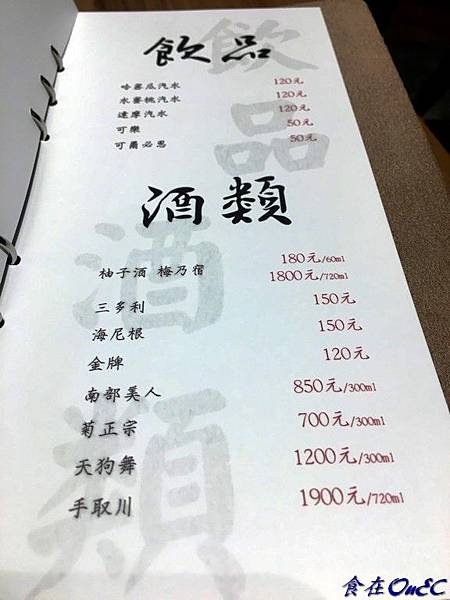 飲品
哈蜜瓜汽水 120元
水蜜桃汽水 120元
達摩汽水 120元
可樂 50元
可爾必思 50元
酒類
柚子酒 梅乃宿 180元/60ml
1800元/720ml
三多利 150元
海尼根 150元
金牌 120元
南部美人 850元/300ml
菊正宗 700元/300ml
天狗舞 1200元/300ml
手取川 1900元/720ml
飲品
酒類
食在OnEC